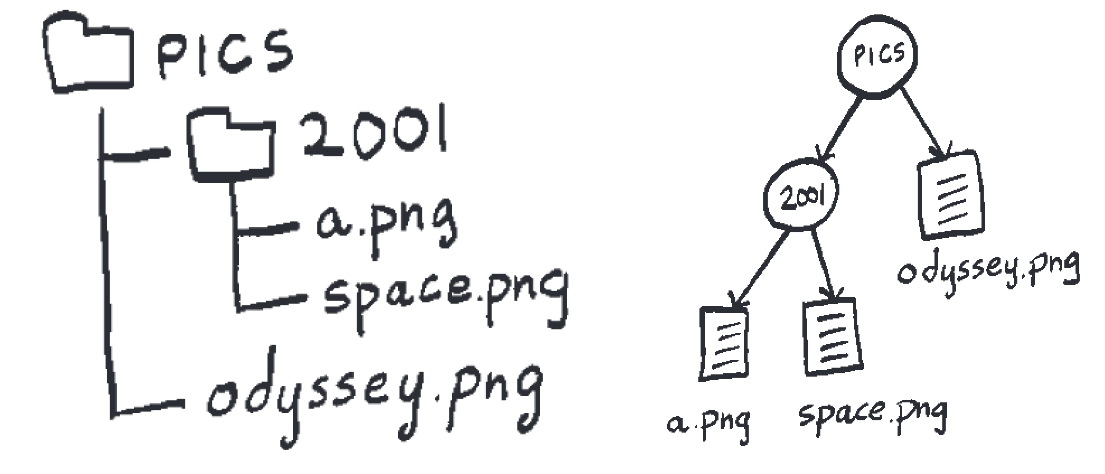 PICS
2001
a.png
space.png
odyssey.png
PICS
2001
odyssey.png
a.png
space.png